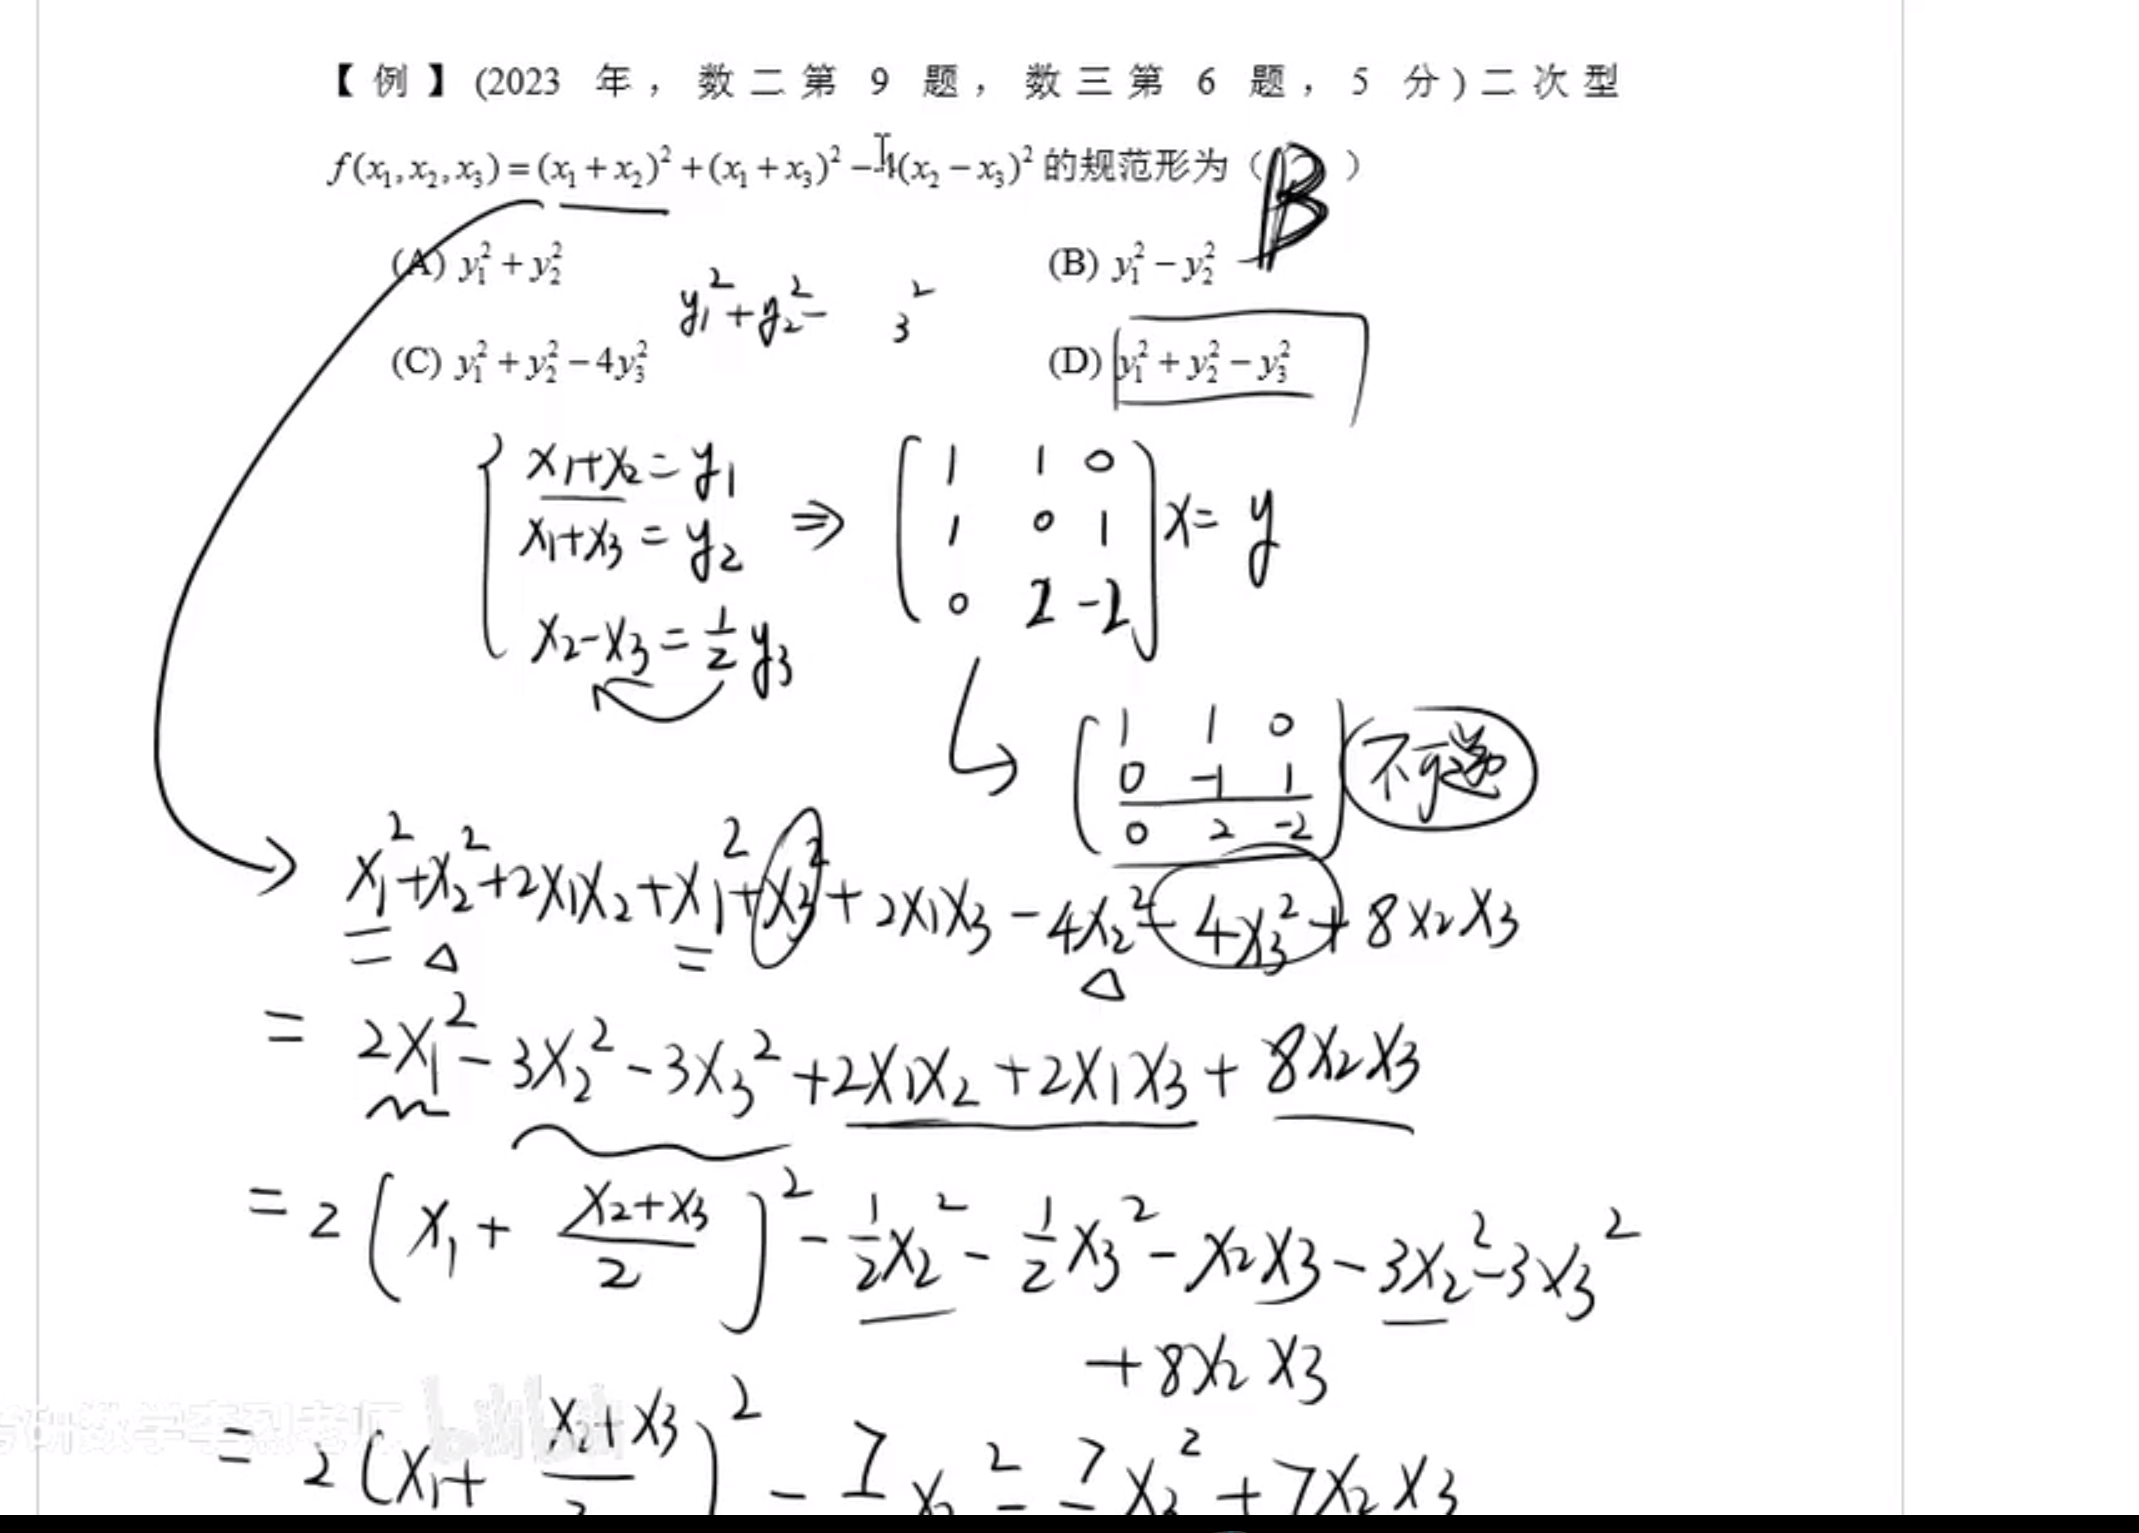 【例】(2023 年，数二第 9 题，数三第 6 题，5 分)二次型
f(x₁,x₂,x₃)=(x₁+x₂)²+(x₁+x₃)²-4(x₂-x₃)² 的规范形为（B）
(A) y₁²+y₂²
(B) y₁²-y₂²
y₁²+y₂²- ₃²
(C) y₁²+y₂²-4y₃²
(D) y₁²+y₂²-y₃²
{ x₁+x₂=y₁
x₁+x₃=y₂
x₂-x₃=1/2 y₃
⇒
1 1 0
1 0 1
0 2 -2
x=y
1 1 0
0 -1 1
0 2 -2
不可逆
x₁²+x₂²+2x₁x₂+x₁²+x₃²+2x₁x₃-4x₂²-4x₃²+8x₂x₃
=2x₁²-3x₂²-3x₃²+2x₁x₂+2x₁x₃+8x₂x₃
=2(x₁+(x₂+x₃)/2)²-1/2x₂²-1/2x₃²-x₂x₃-3x₂²-3x₃²
+8x₂x₃
考研数学李烈老师 bilibili
=2(x₁+(x₂+x₃)/2)²-7/ x₂²-7/ x₃²+7x₂x₃